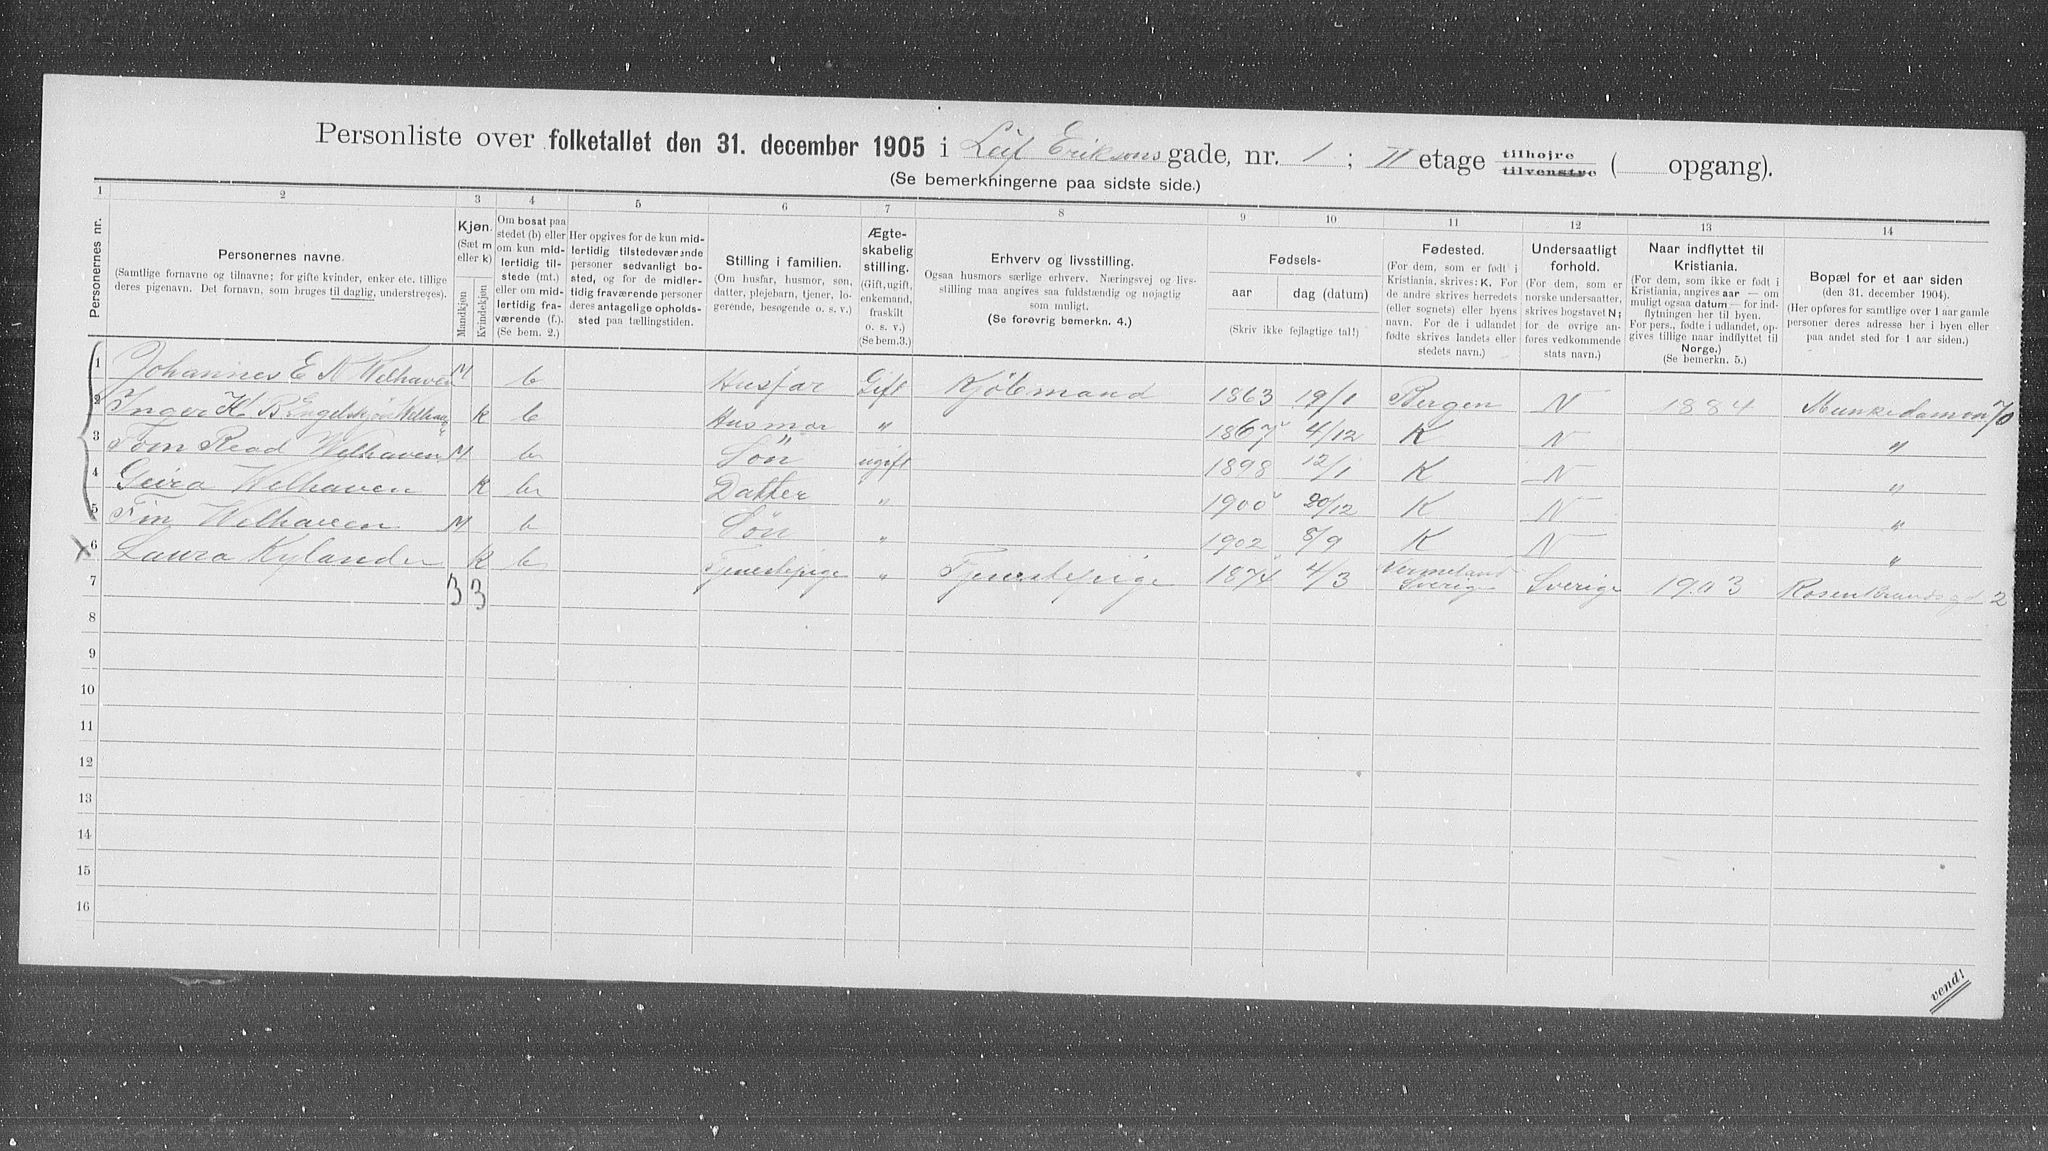 Personliste over folketallet den 31. december 1905 i Leif Eriksons gade, nr. 1; II etage tilhøjre tilvenstre ( opgang).
(Se bemerkningerne paa sidste side.)
1 2 3 4 5 6 7 8 9 10 11 12 13 14
Personernes nr.
Personernes navne.
(Samtlige fornavne og tilnavne; for gifte kvinder, enker etc. tillige
deres pigenavn. Det fornavn, som bruges til daglig, understreges).
Kjøn.
(Sæt m
eller k)
Mandkjøn
Kvindekjøn
Om bosat paa
stedet (b) eller
om kun mid-
lertidig til-
stede (mt.)
eller om mid-
lertidig fra-
værende (f.).
(Se bem. 2.)
Her opgives for de kun mid-
lertidig tilstedeværende
personer sedvanligt bo-
sted, og for de midler-
tidig fraværende personer
deres antagelige opholds-
sted paa tællingstiden.
Stilling i familien.
(Om husfar, husmor, søn,
datter, plejebarn, tjener, lo-
gerende, besøgende o. s. v.)
Ægte-
skabelig
stilling.
(Gift, ugift,
enkemand,
fraskilt
o. s. v.)
(Se bem. 3.)
Erhverv og livsstilling.
Ogsaa husmors særlige erhverv. Næringsvej og livs-
stilling maa angives saa fuldstændig og nøjagtig
som muligt.
(Se forøvrig bemerkn. 4.)
Fødsels-
aar dag (datum)
(Skriv ikke fejlagtige tal!)
Fødested.
(For dem, som er født i
Kristiania, skrives: K. For
de andre skrives herredets
(eller sognets) eller byens
navn. For de i udlandet
fødte skrives landets eller
stedets navn.)
Undersaatligt
forhold.
(For dem, som er
norske undersaatter,
skrives bogstavet N;
for de øvrige an-
føres vedkommende
stats navn.)
Naar indflyttet til
Kristiania.
(For dem, som ikke er født i
Kristiania, angives aar — om
muligt ogsaa datum — for ind-
flytningen her til byen.
For pers., fødte i udlandet, op-
gives tillige naar indflyttet til
Norge.)
(Se bemerkn. 5.)
Bopæl for et aar siden
(den 31. december 1904).
(Her opføres for samtlige over 1 aar gamle
personer deres adresse her i byen eller
paa andet sted for 1 aar siden.)
1 Johannes E K Welhaven M b Husfar Gift Kjöbmand 1863 19/1 Bergen N 1884 Munkedamsv 70
2 Inger K. B Engelskjøn Welhaven k b Husmor " 1867 4/12 K N "
3 Tom Read Welhaven M b Sön ugift 1898 12/1 K N "
4 Geira Welhaven K b Datter " 1900 20/12 K N "
5 Fin Welhaven M b Sön " 1902 8/9 K N "
6 Laura Kylander K b Tjenestepige " Tjenestepige 1874 4/3 Vermeland Sverige Sverige 1903 Rosenkrandsgd 2
7 3 3
8
9
10
11
12
13
14
15
16
vend!